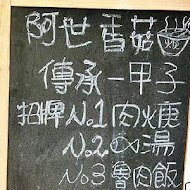 阿世香菇
傳承一甲子
招牌No.1肉焿
No.2 湯
No3魯肉飯